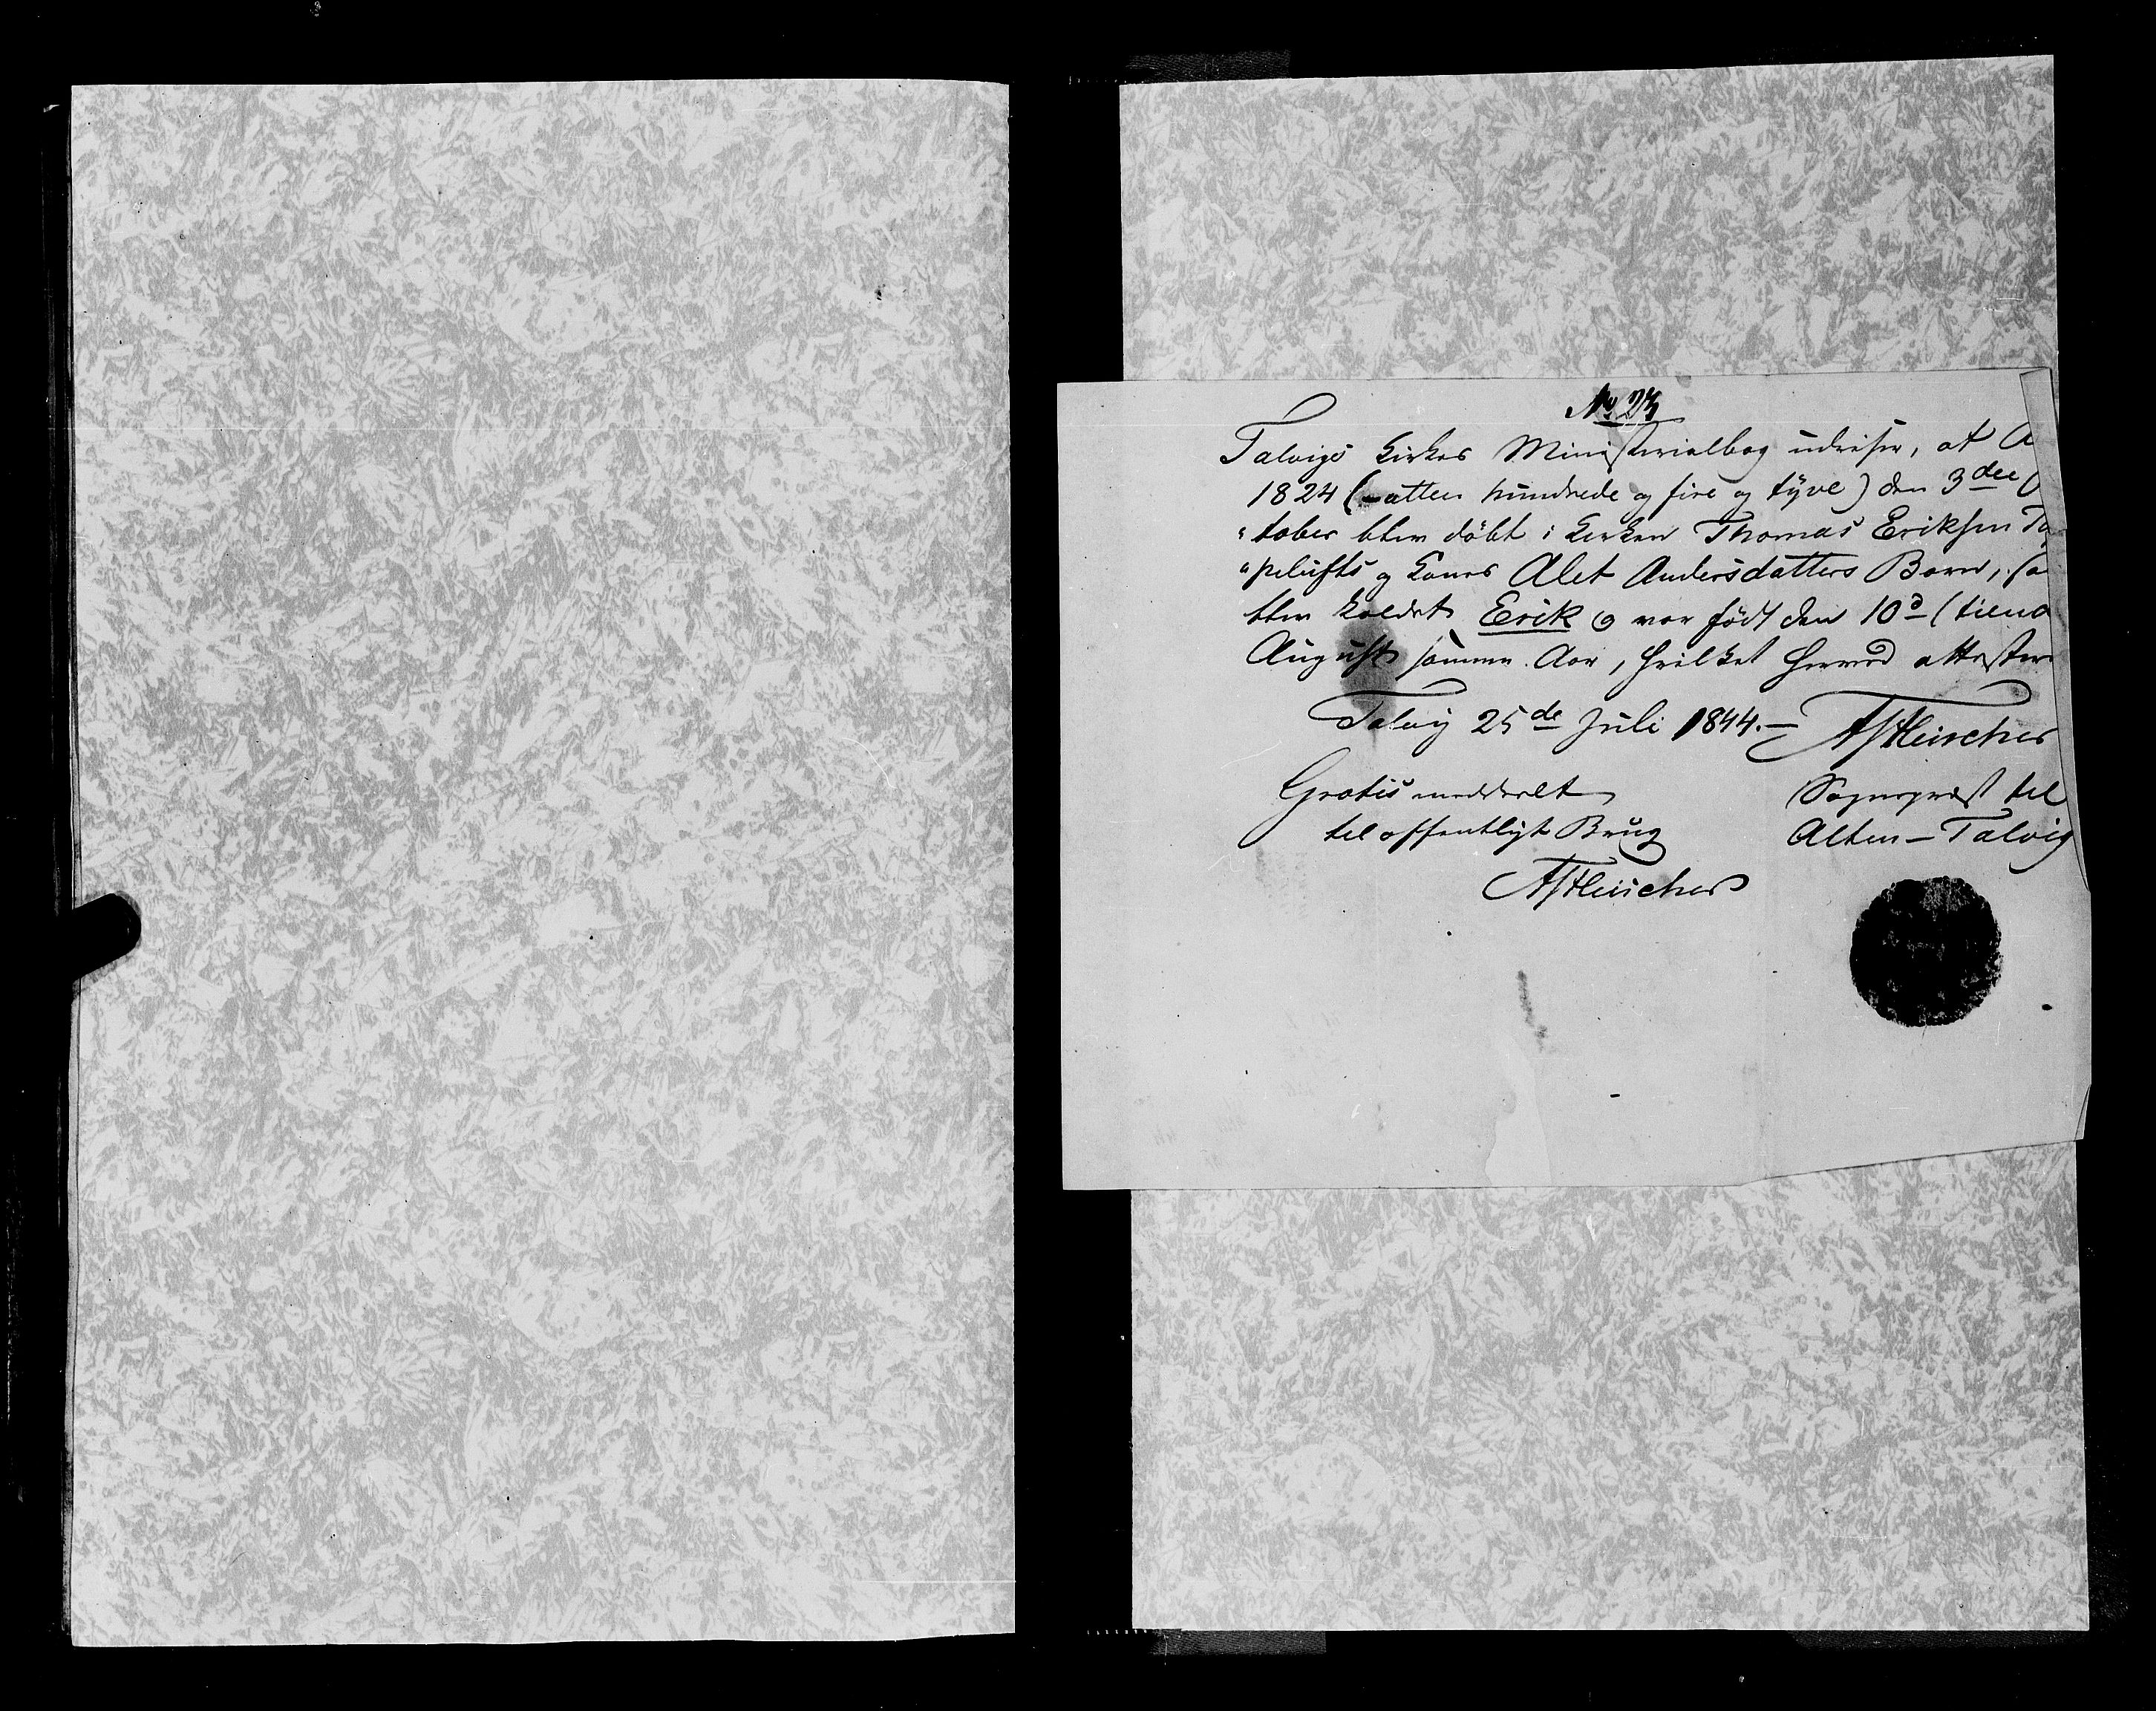 No 23
Talvigs Kirkes Ministerialbog udviser, at A
1824 (-atten hundrede og fire og tyve) den 3die O
"tober blev döbt i Kirken Thomas Eriksen To
"pelufts og Kones Alet Andersdatters Barn, so
blev kaldet Erik og var födt den 10d (tiend
August samme Aar, hvilket herved attestere
Talvig 25de Juli 1844.- AFleischer
Gratis meddeelt
til offentligt Brug
AFleischer
Sognepræst til
Alten-Talvig